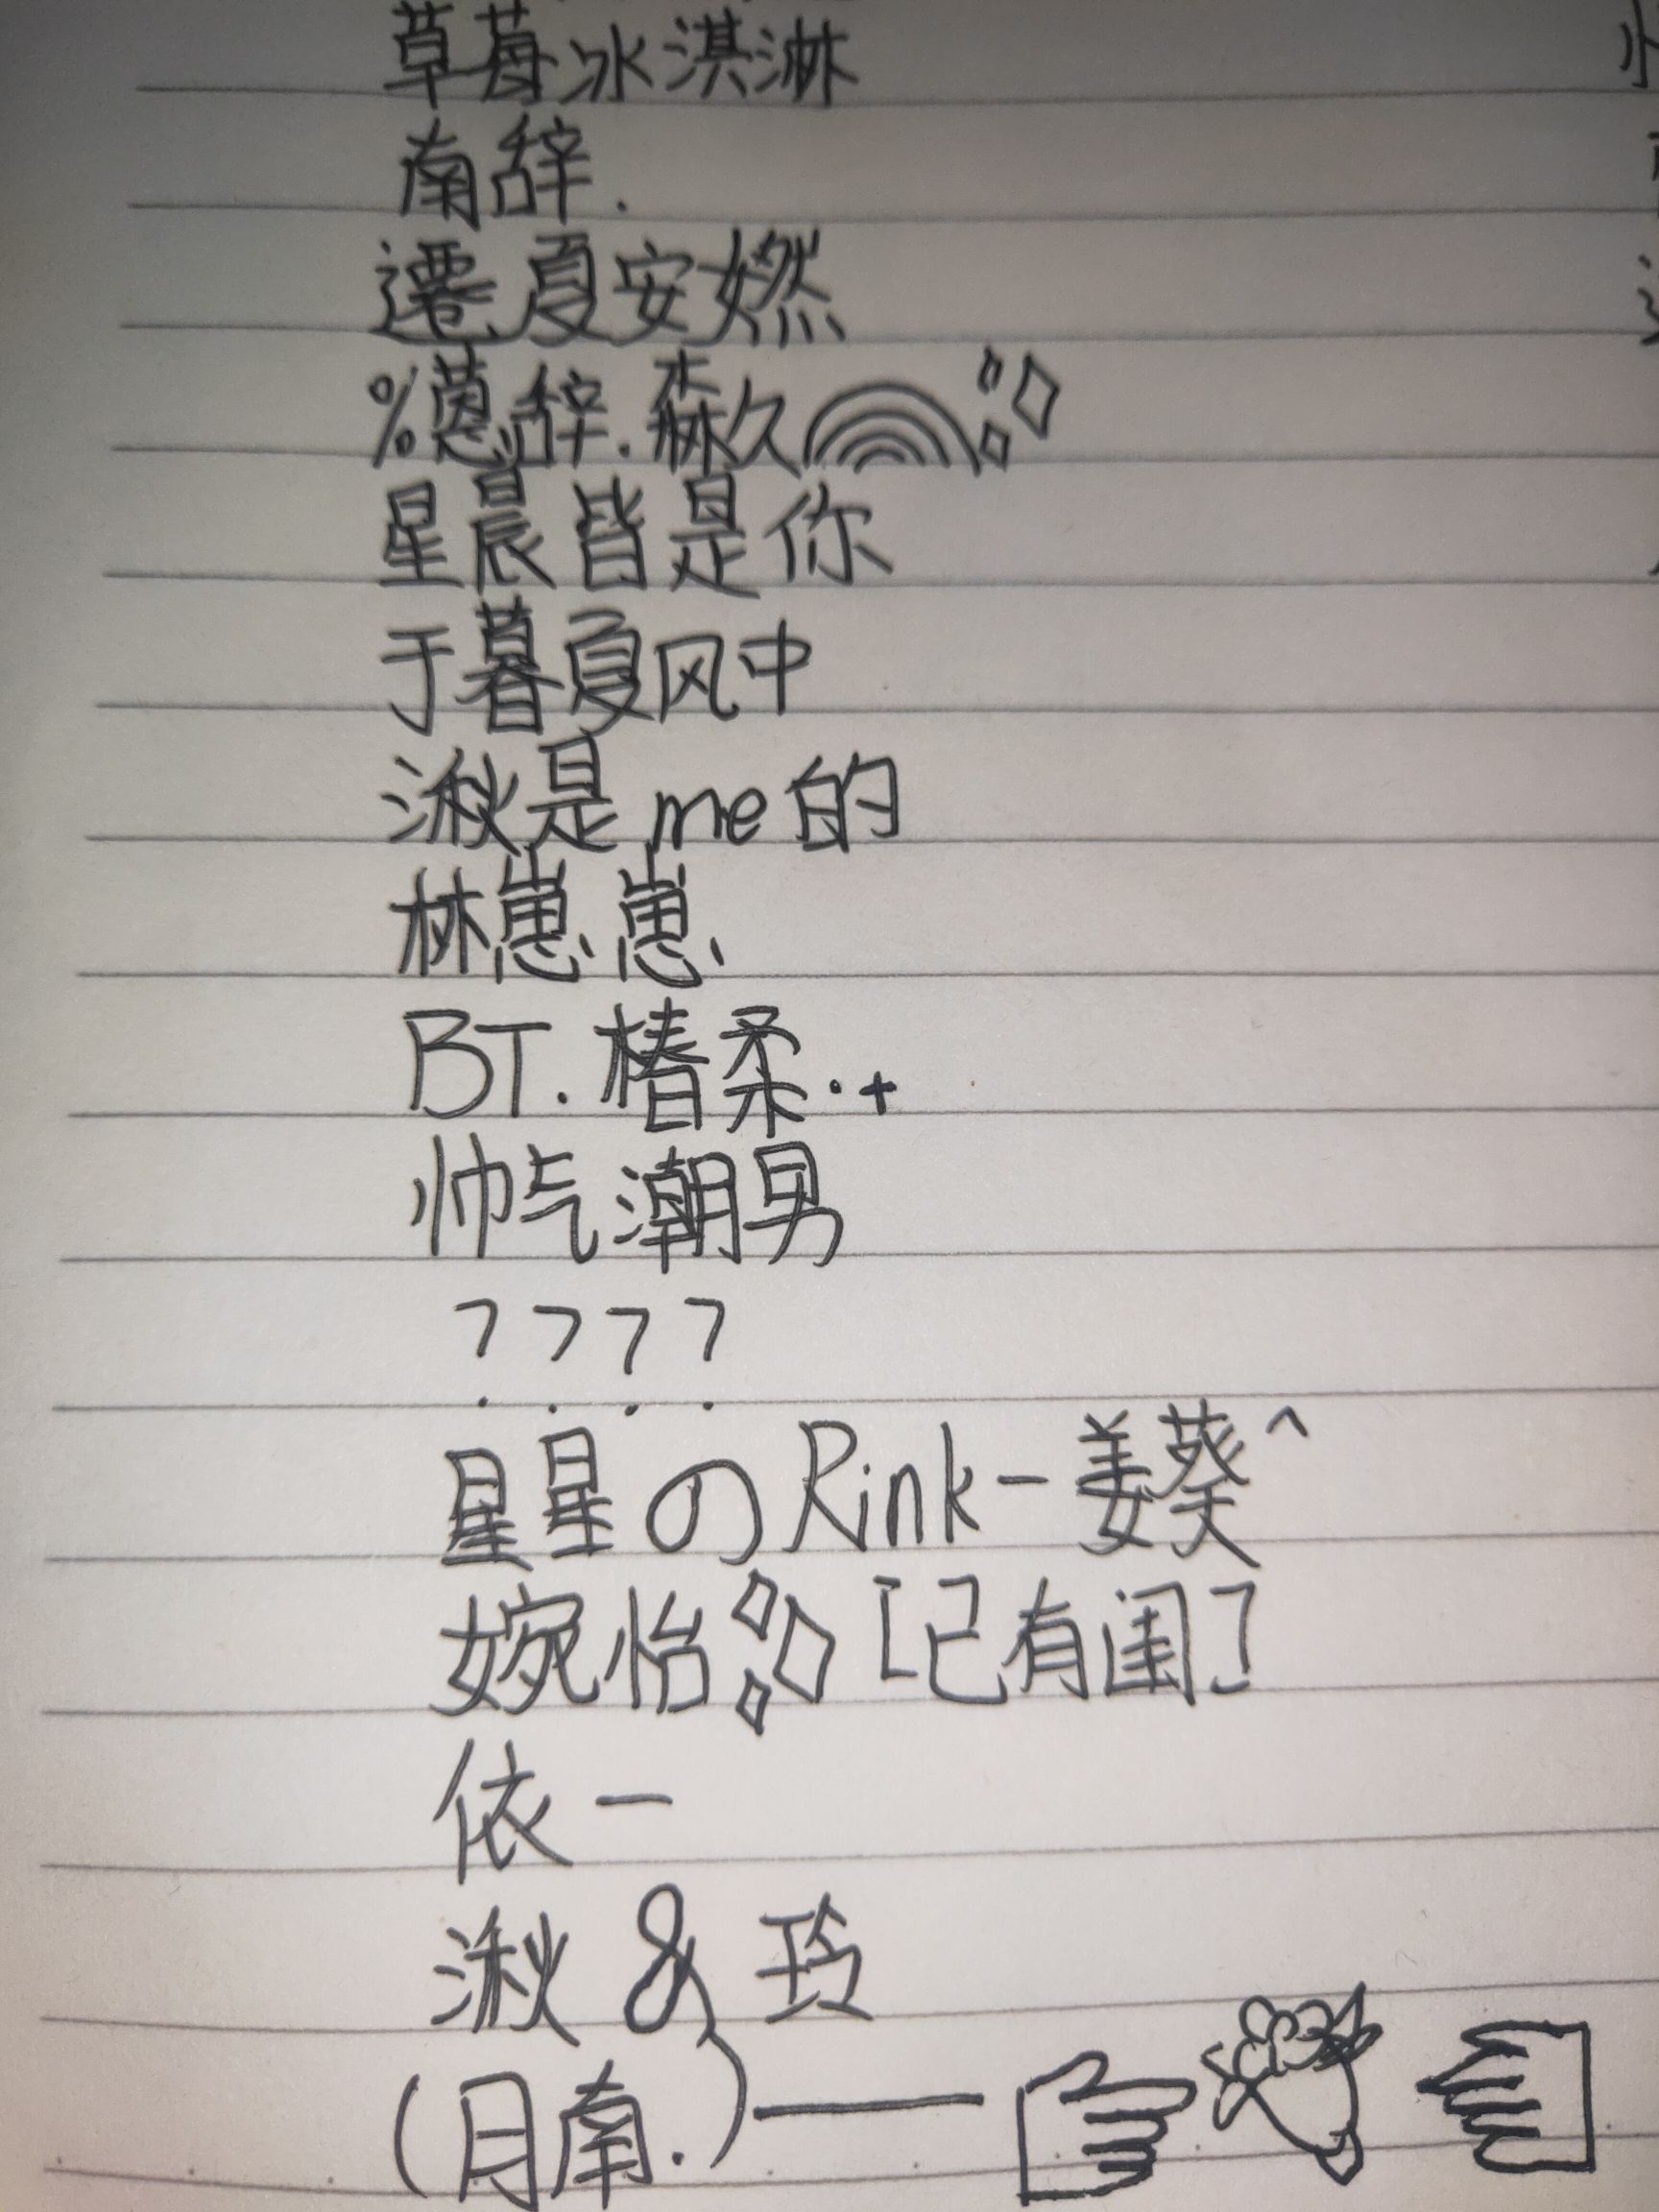 草莓冰淇淋
南辞.
遷夏安嬨
%蒽辞.森久
星晨皆是你
于暮夏风中
湫是me的
林崽崽
BT.椿柔.+
帅气潮男
????
星星のRink-姜葵^
婉怡[已有闺]
依一
湫&玲
(月南.)